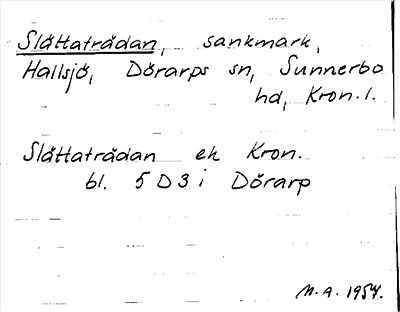 Slåttatrådan, sankmark,
Hallsjö, Dörarps sn, Sunnerbo
hd, Kron. l.
Slåttatrådan ek Kron.
bl. 5 D 3 i Dörarp
M. A. 1957.